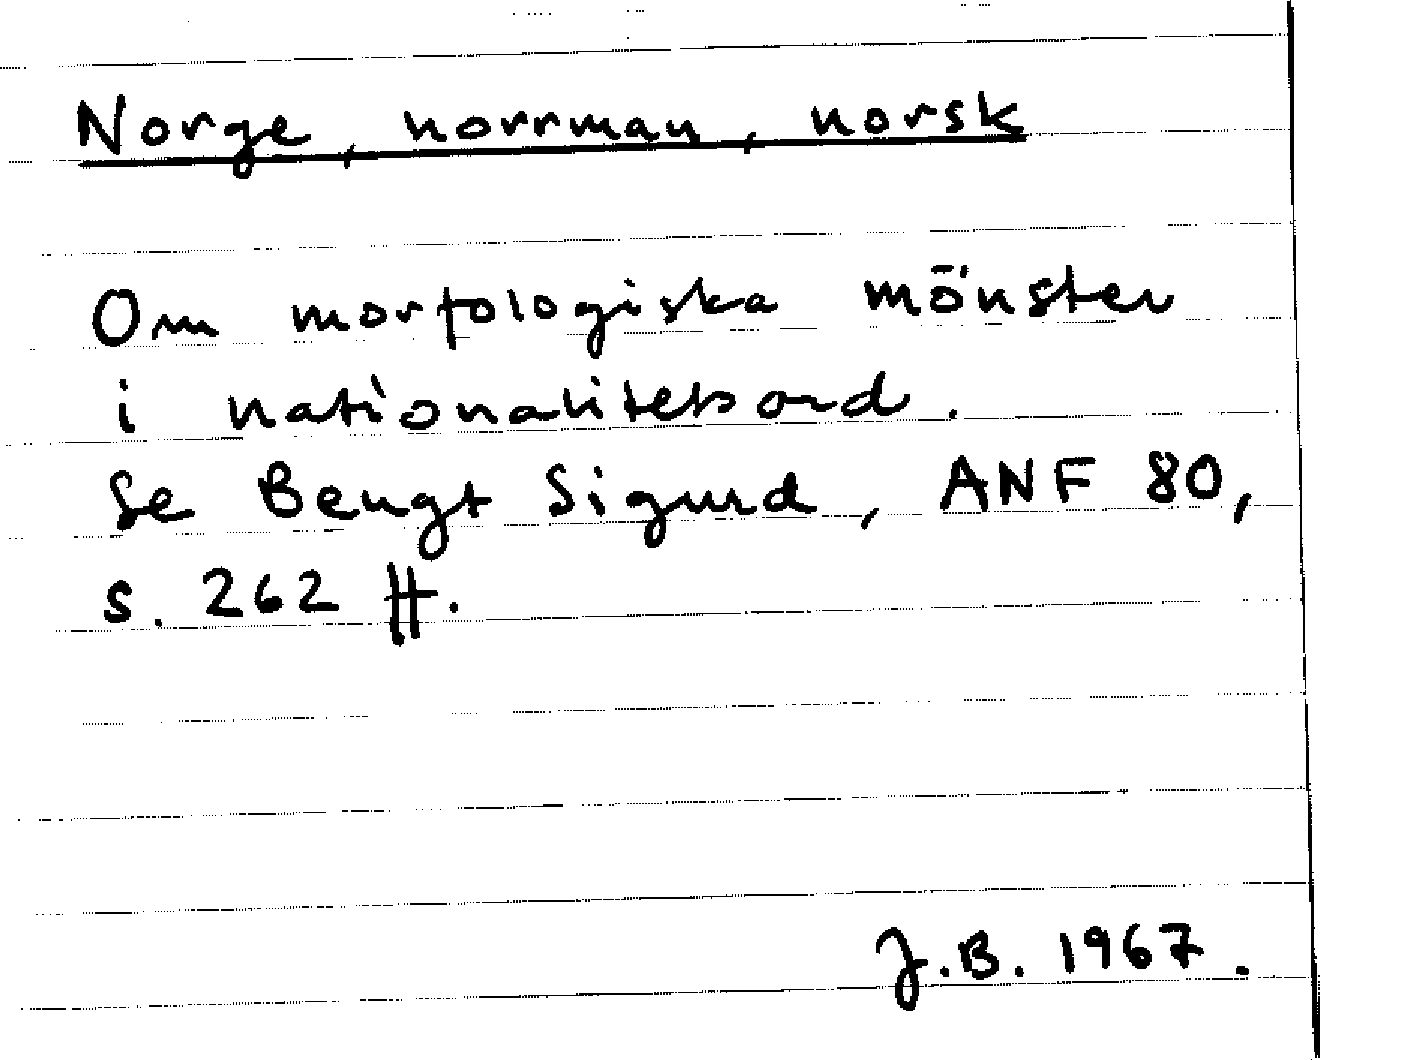 Norge, norrman, norsk
Om morfologiska mönster
i nationalitetsord.
Se Bengt Sigurd, ANF 80,
s. 262 ff.
J.B. 1967.